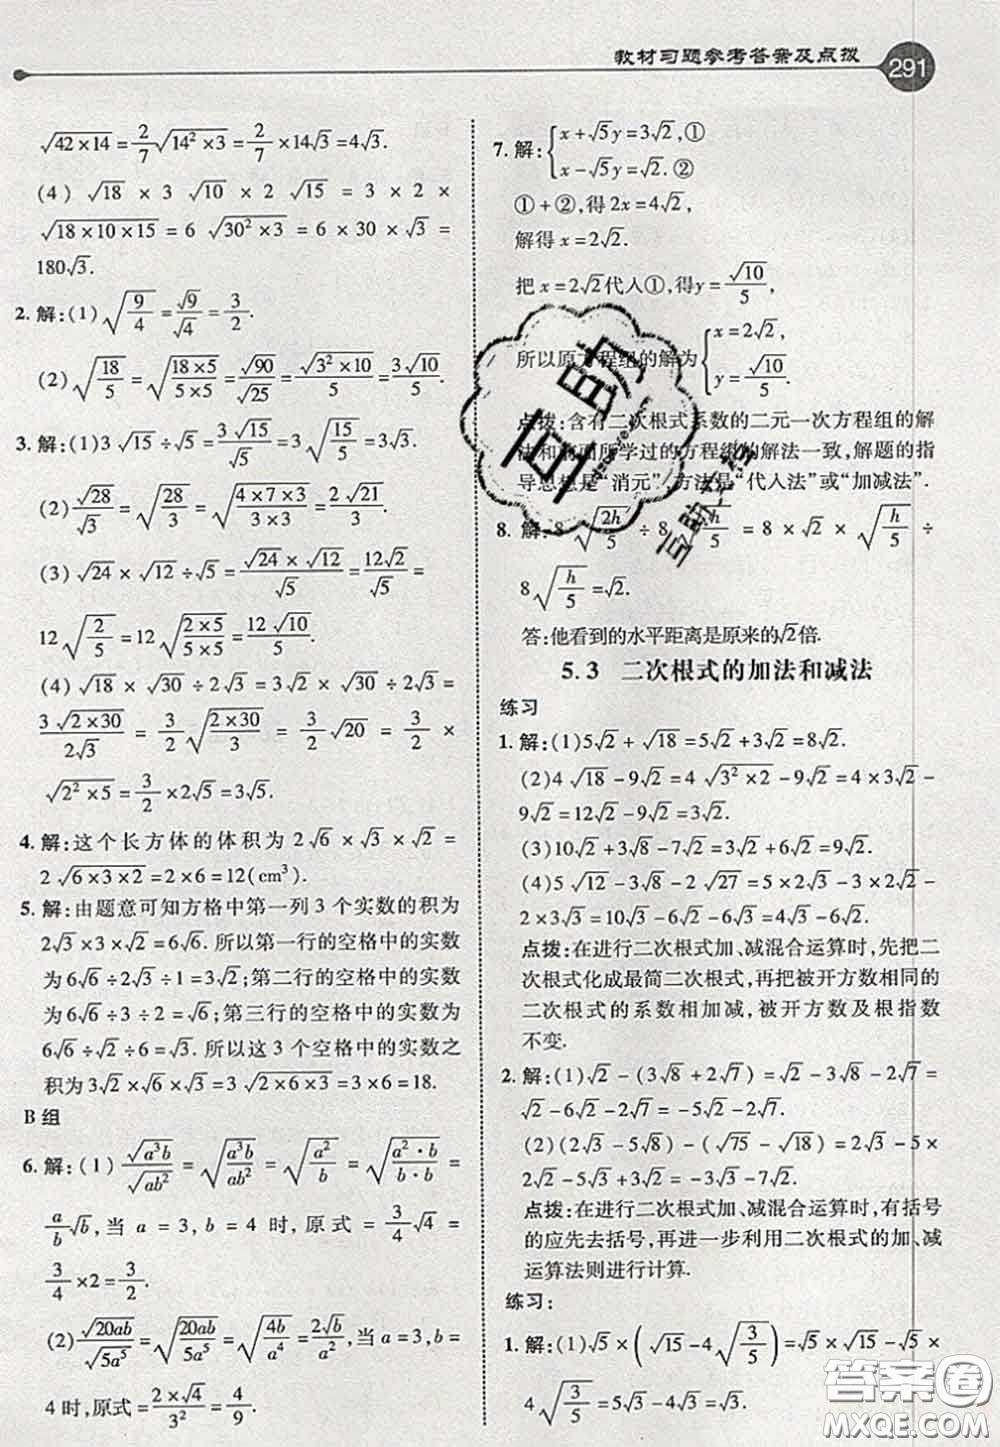 教材习题参考答案及点拨 291
√(42×14) = 2/7 √(14²×3) = 2/7 × 14√3 = 4√3.
(4) √18 × 3 √10 × 2 √15 = 3 × 2 ×
√(18×10×15) = 6 √(30²×3) = 6 × 30 × √3 =
180√3.
2. 解:(1)√(9/4) = √9/√4 = 3/2.
(2)√(18/5) = √((18×5)/(5×5)) = √90/√25 = √(3²×10)/5 = 3√10/5.
3. 解:(1)3√15÷√5 = 3√15/√5 = 3√(15/5) = 3√3.
(2)√28/√3 = √(28/3) = √((4×7×3)/(3×3)) = 2√21/3.
(3)√24×√12÷√5 = (√24×√12)/√5 = 12√2/√5 =
12√(2/5) = 12√((2×5)/(5×5)) = 12√10/5.
(4)√18 × √30 ÷ 2√3 = 3√2 × √30 ÷ 2√3 =
3√(2×30)/2√3 = 3/2 × √((2×30)/3) = 3/2 √20 = 3/2 ×
√(2²×5) = 3/2 × 2√5 = 3√5.
4. 解:这个长方体的体积为 2√6 × √3 × √2 =
2√(6×3×2) = 2×6 = 12(cm³).
5. 解:由题意可知方格中第一列 3 个实数的积为
2√3×3×√2 = 6√6. 所以第一行的空格中的实数
为 6√6÷2√3÷1 = 3√2;第二行的空格中的实数
为 6√6 ÷3 ÷2 = √6;第三行的空格中的实数为
6√6÷√2÷2 = √3. 所以这 3 个空格中的实数之
积为 3√2×√6×√3 = 3√(2×6×3) = 3×6 = 18.
B 组
6. 解:(1) √(a³b)/√(ab²) = √(a³b/ab²) = √(a²/b) = √((a²·b)/(b·b)) =
a/b √b,当 a = 3,b = 4 时,原式 = 3/4 √4 =
3/4 ×2 = 3/2.
(2)√(20ab)/√(5a⁵) = √(20ab/5a⁵) = √(4b/a⁴) = 2√b/a²,当 a = 3,b =
4 时,原式 = (2×√4)/3² = 4/9.
7. 解: { x+√5y = 3√2,①
x−√5y = √2. ②
① + ②,得 2x = 4√2,
解得 x = 2√2.
把 x = 2√2代入①,得 y = √10/5,
所以原方程组的解为 { x = 2√2,
y = √10/5.
点拨:含有二次根式系数的二元一次方程组的解
法和前面所学过的方程组的解法一致,解题的指
导思想是“消元”,方法是“代入法”或“加减法”.
8. 解:8√(2h/5) ÷ 8√(h/5) = 8 × √2 × √(h/5) ÷
8√(h/5) = √2.
答:他看到的水平距离是原来的√2倍.
5.3 二次根式的加法和减法
练习
1. 解:(1)5√2 + √18 = 5√2 + 3√2 = 8√2.
(2)4 √18 − 9√2 = 4 √(3²×2) − 9√2 = 4×3√2 −
9√2 = 12√2 − 9√2 = 3√2.
(3)10√2 + 3√7 − 7√2 = 3√2 + 3√7.
(4)5 √12 − 3√8 − 2√27 = 5×2√3 − 3×2√2 −
2×3√3 = 10√3 − 6√2 − 6√3 = 4√3 − 6√2.
点拨:在进行二次根式加、减混合运算时,先把二
次根式化成最简二次根式,再把被开方数相同的
二次根式的系数相加减,被开方数及根指数
不变.
2. 解:(1)√2 − (3√8 + 2√7) = √2 − 3√8 − 2√7 =
√2 − 6√2 − 2√7 = −5√2 − 2√7.
(2)(2√3 − 5√8) − (√75 − √18) = 2√3 − 5×
2√2 − 5√3 + 3√2 = −3√3 − 7√2.
点拨:在进行二次根式加、减混合运算时,有括号
的应先去括号,再进一步利用二次根式的加、减
运算法则进行计算.
练习:
1. 解:(1)√5 × (√15 − 4√(3/5)) = √5 × √15 − √5 ×
4√(3/5) = √5×15 −
互助
互助文君
答案圈
MXQE.COM